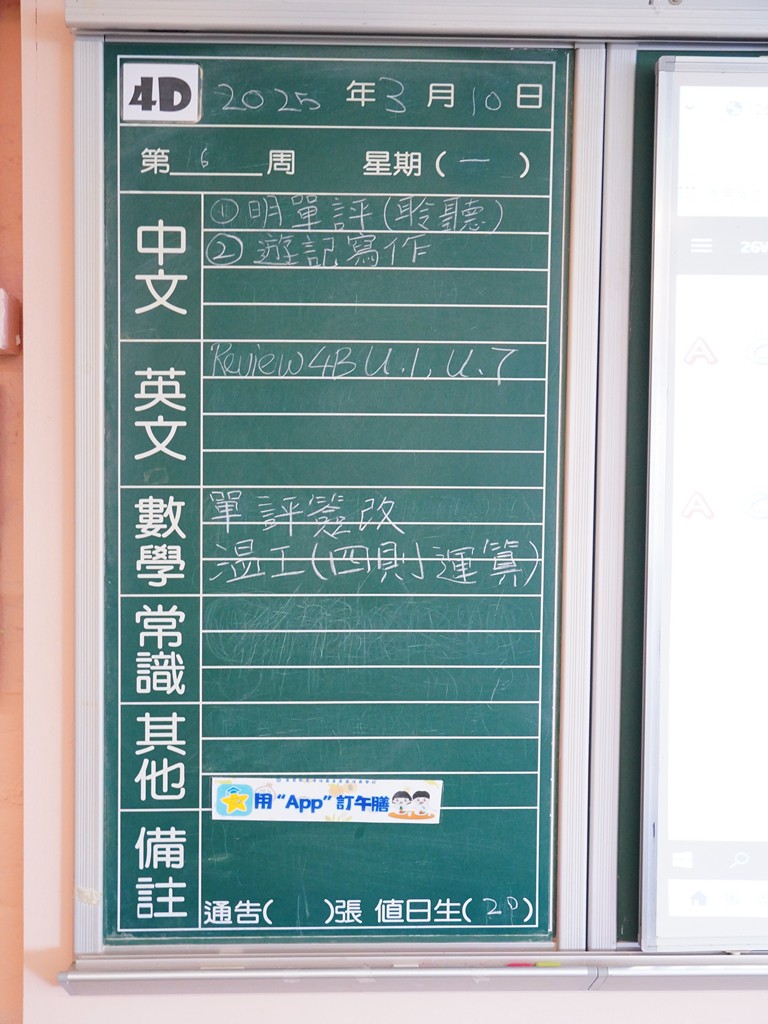 4D 2025 年 3 月 10 日
第 16 周 星期 ( 一 )
中文
① 明單評(聆聽)
② 遊記寫作
英文
Review 4B U.1, U.7
數學
單評簽改
溫工(四則運算)
常識
其他
用“App”訂午膳
備註
通告( 1 )張 值日生( 20 )